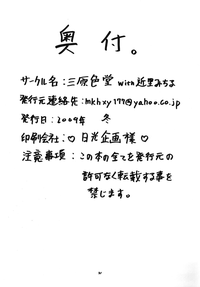 奥付。
サークル名：三原色堂 with 近里みちる
発行元連絡先：mkhxy177@yahoo.co.jp
発行日：2009年 冬
印刷会社：♡日光企画様♡
注意事項：この本の全てを発行元の
許可なく転載する事を
禁じます。